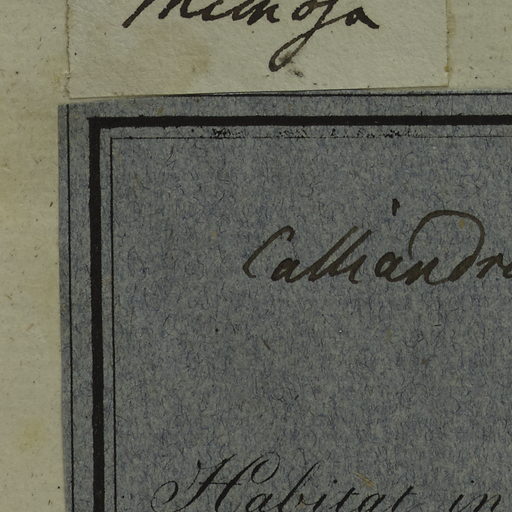 Mimosa
Calliandra
Habitat in